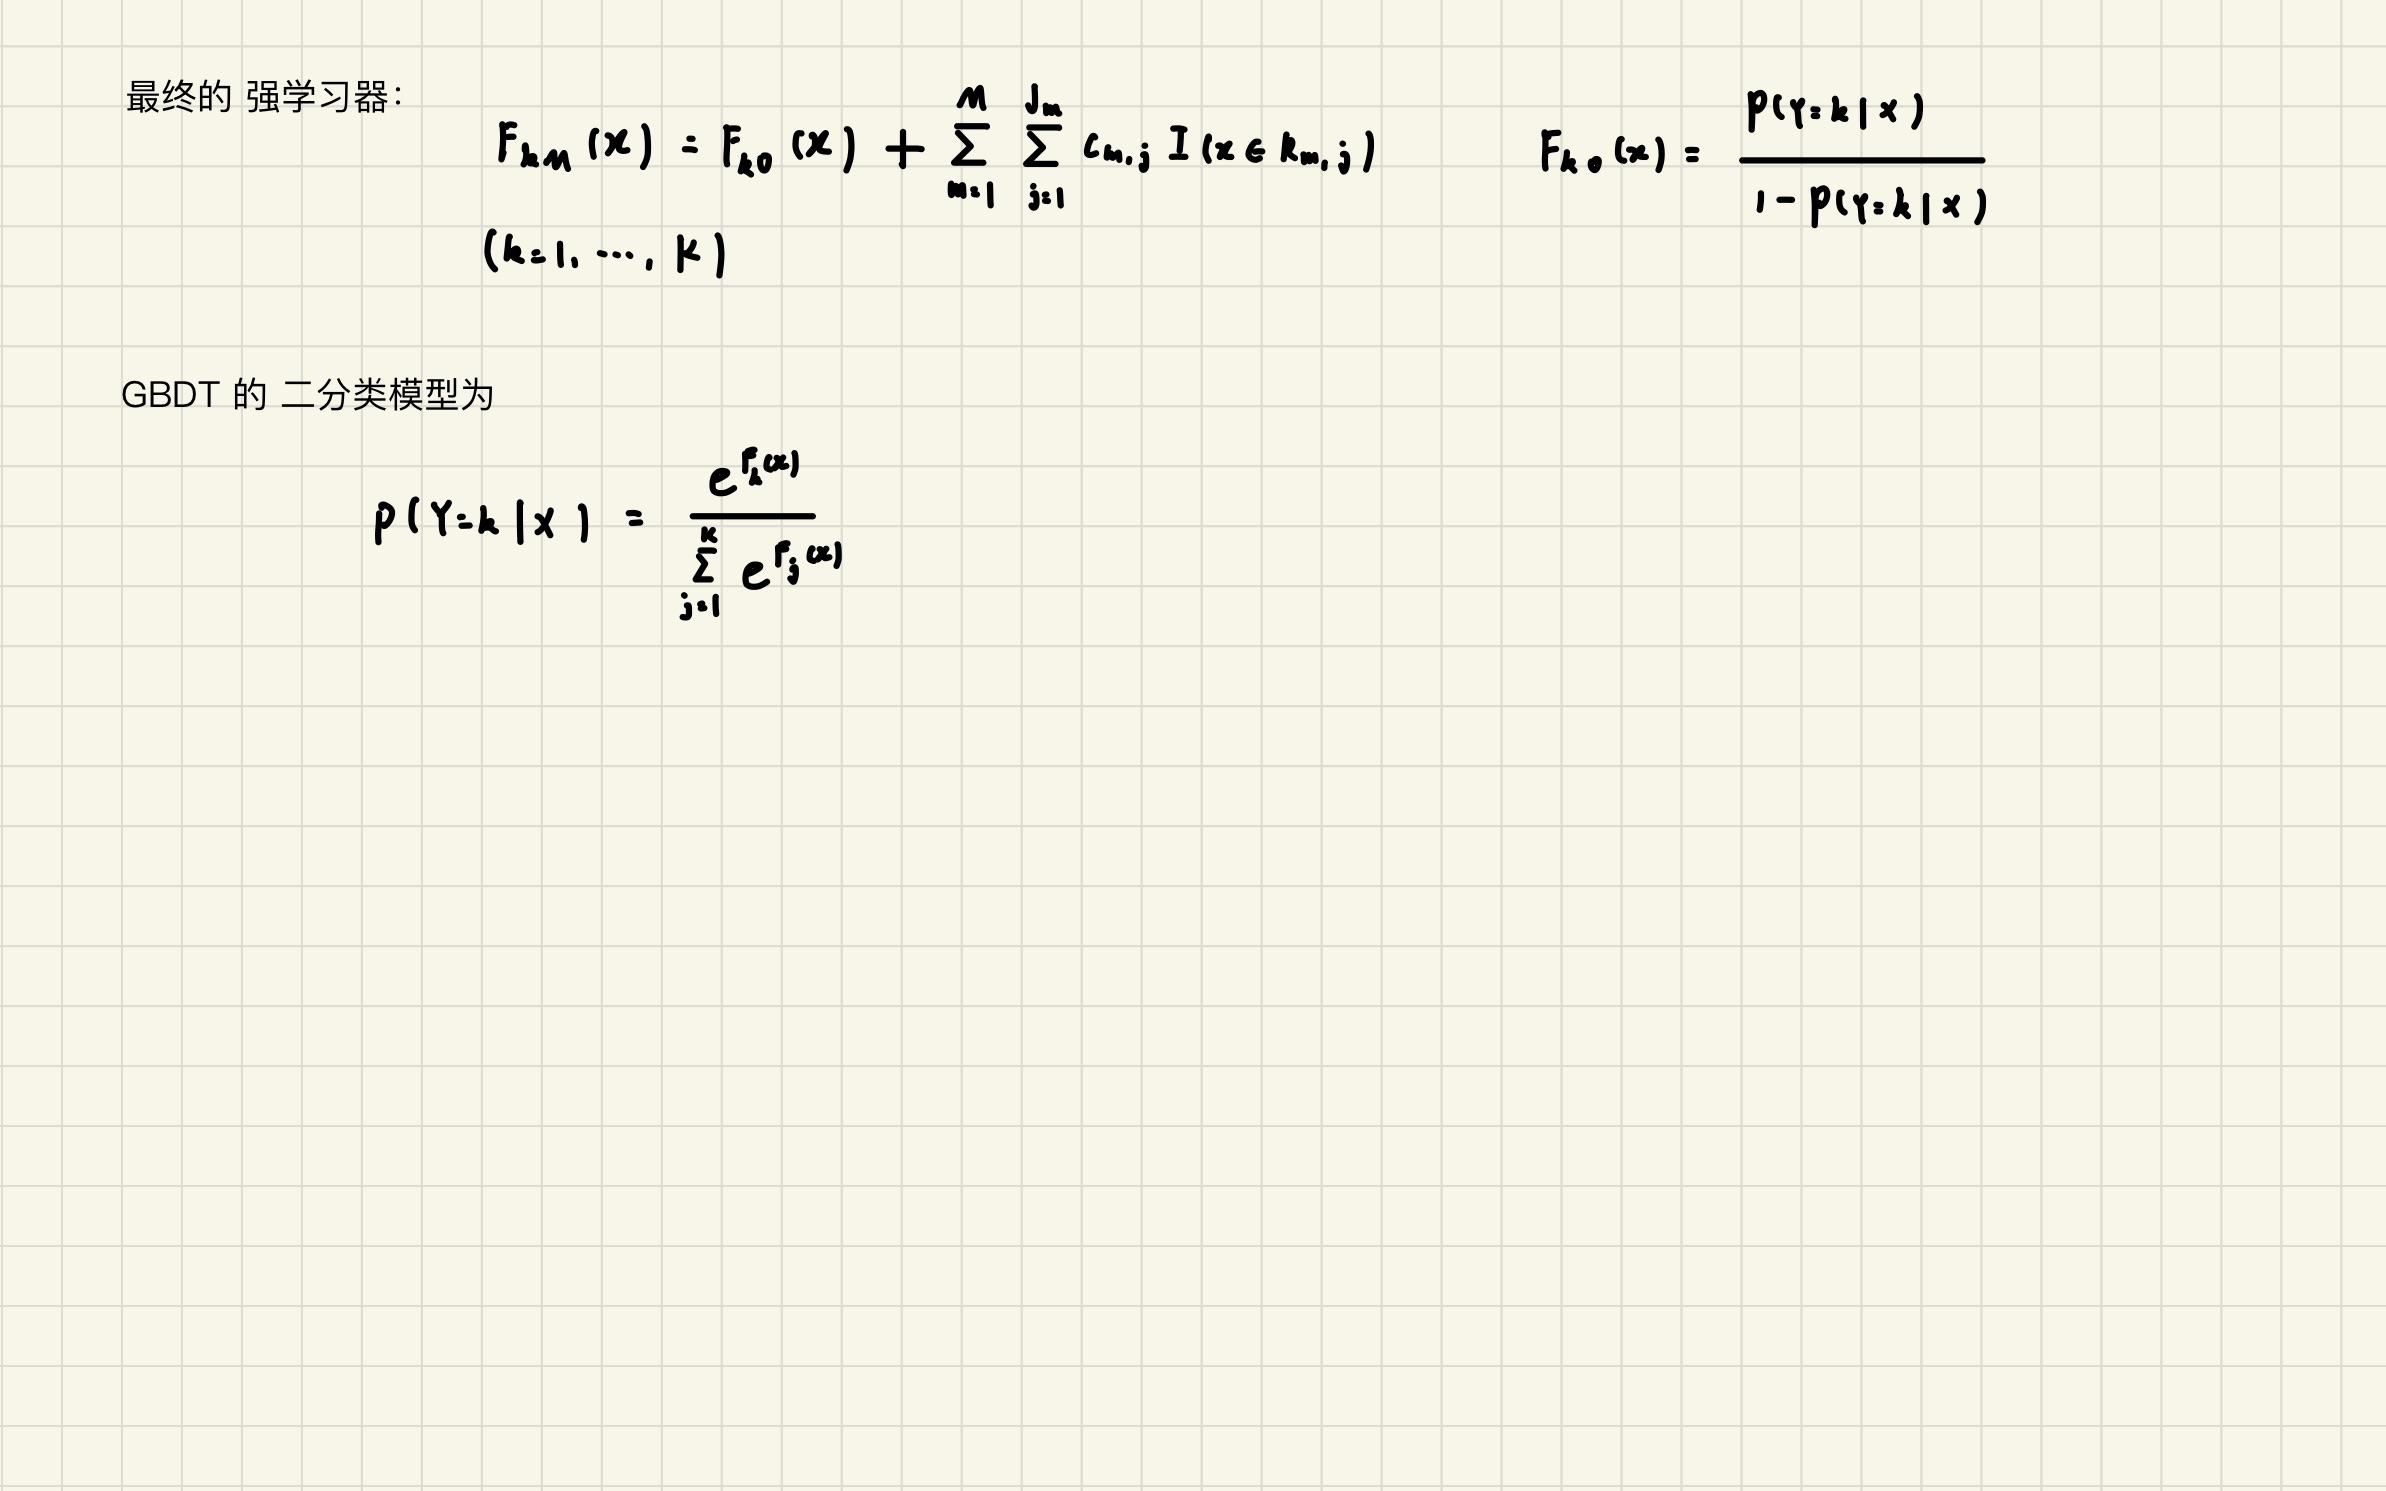 最终的 强学习器：
F_{kM}(x) = F_{k0}(x) + \sum_{m=1}^{M} \sum_{j=1}^{J_m} c_{m,j} I(x ∈ R_{m,j})
F_{k0}(x) = \frac{P(Y=k|x)}{1-P(Y=k|x)}
(k=1, ⋯, K)
GBDT 的 二分类模型为
P(Y=k|x) = \frac{e^{F_k(x)}}{\sum_{j=1}^{K} e^{F_j(x)}}